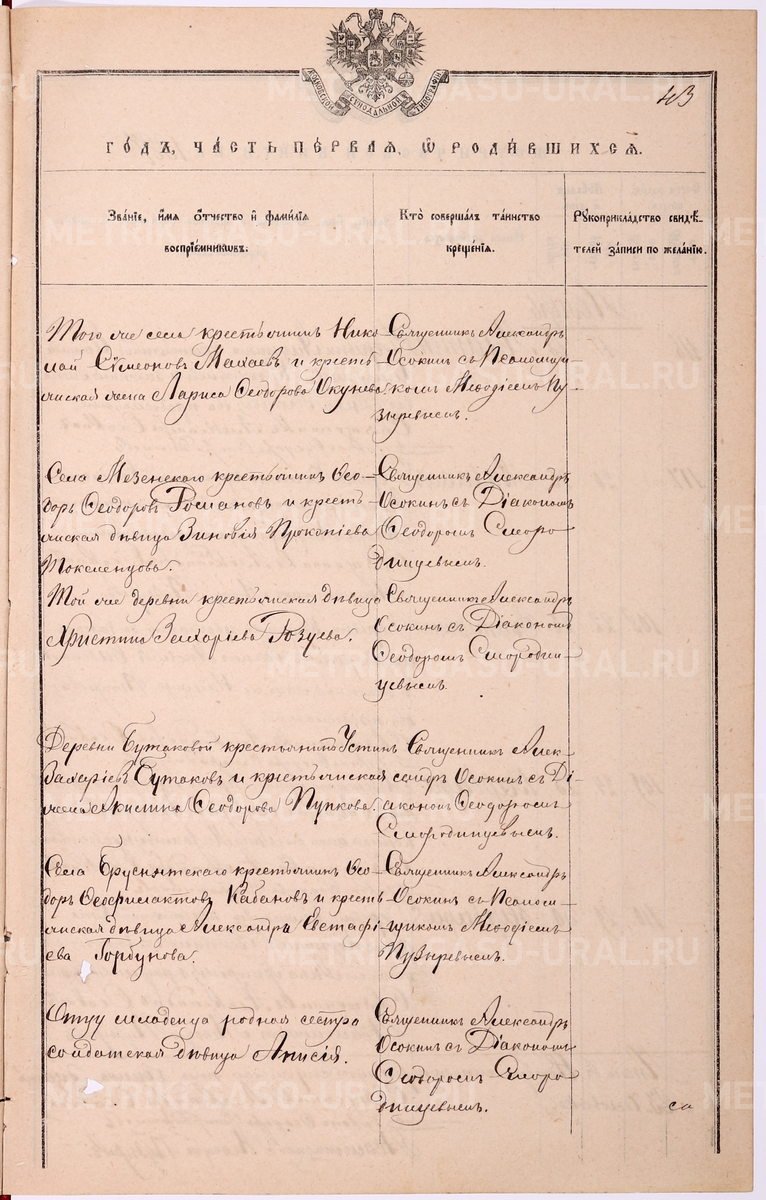 МОСКОВСКОЙ СѴНОДАЛЬНОЙ ТИПОГРАФІИ
43
ГО́ДЪ, ЧА́СТЬ ПЕ́РВАЯ, Ѡ҆ РОДИ́ВШИХСЯ.
Зва́нїе, и҆́мѧ ѻ҆́тчество и҆ фами́лїѧ
воспрїе́мникѡвъ.
Кто̀ соверша́лъ та́инство
креще́нїѧ.
Рꙋкоприкла́дство свидѣ́-
телей за́писи по жела́нїю.
Того же села крестьянинъ Нико
лай Сѵмеоновъ Махаевъ и кресть
янская жена Лариса Ѳеодорова Окунева.
Священникъ Александръ
Осокинъ съ Псаломщи-
комъ Меѳодіемъ Пу
зыревымъ.
Села Мезенскаго крестьянинъ Ѳео-
доръ Ѳеодоровъ Романовъ и кресть-
янская дѣвица Зиновія Прокопіева
Токменцова.
Священникъ Александръ
Осокинъ съ Діакономъ
Ѳеодоромъ Сморо
динцевымъ.
Той же деревни крестьянская дѣвица
Христина Захаріева Розуева.
Священникъ Александръ
Осокинъ съ Діакономъ
Ѳеодоромъ Смородин-
цевымъ.
Деревни Бутаковой крестьянинъ Устинъ
Захаріевъ Бутаковъ и крестьянская
жена Акилина Ѳеодорова Пупкова.
Священникъ Алек-
сандръ Осокинъ съ Ді-
акономъ Ѳеодоромъ
Смородинцевымъ.
Села Бруснятскаго крестьянинъ Ѳео
доръ Ѳеофилактовъ Кабановъ и кресть
янская дѣвица Александра Евстафі
ева Горбунова.
Священникъ Александръ
Осокинъ съ Псалом-
щикомъ Меѳодіемъ
Пузыревымъ.
Отцу младенца родная сестра
солдатская дѣвица Анисія.
Священникъ Александръ
Осокинъ съ Діакономъ
Ѳеодоромъ Сморо
динцевымъ.
METRICI.GASO-URAL.RU